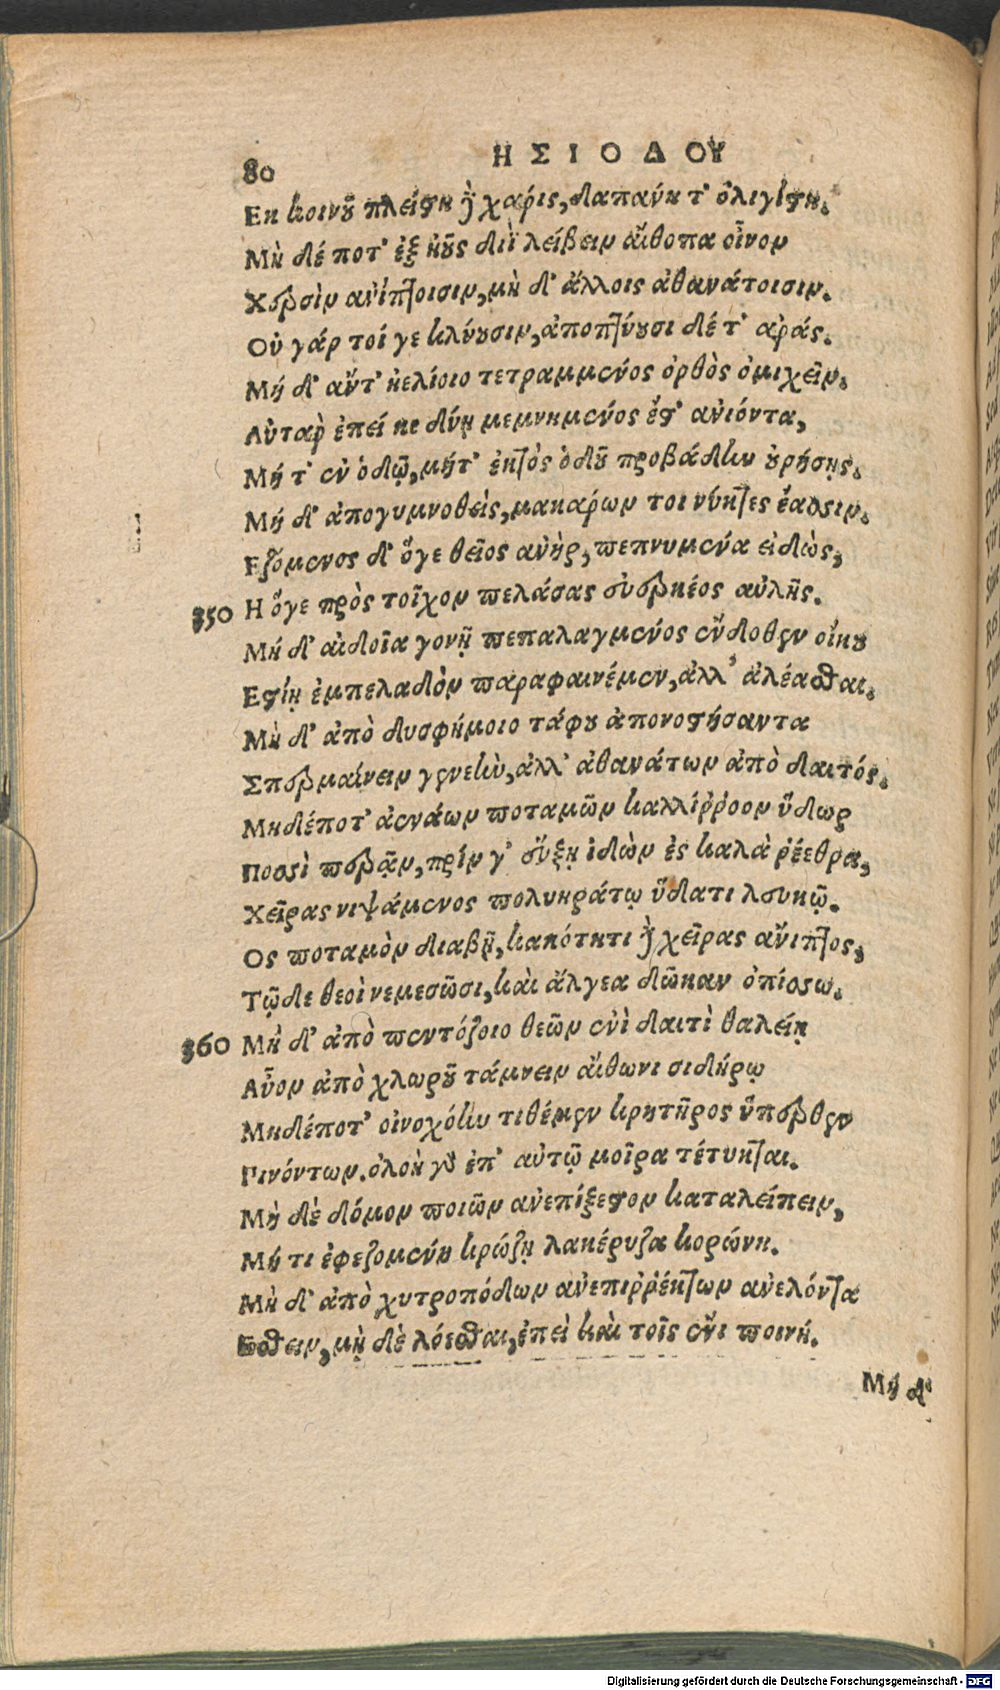 80
ΗΣΙΟΔΟΥ
Εκ κοινοῦ πλείστη δὲ χάρις, δαπάνη τ' ὀλιγίστη.
Μὴ δέ ποτ' ἐξ ἠοῦς διῒ λείβειν αἴθοπα οἶνον
Χερσὶν ἀνίπτοισιν, μὴ δ' ἄλλοις ἀθανάτοισιν.
Οὐ γάρ τοί γε κλύουσιν, ἀποπτύουσι δέ τ' ἀράς.
Μή δ' ἄντ' ἠελίοιο τετραμμένος ὀρθὸς ὀμιχεῖν.
Αὐτὰρ ἐπεί κε δύῃ μεμνημένος ἔστ' ἀνιόντα,
Μή τ' ἐν ὁδῷ, μήτ' ἐκτὸς ὁδοῦ προβάδην οὐρήσῃς.
Μή δ' ἀπογυμνοθεὶς, μακάρων τοι νύκτες ἔασσιν.
Εζόμενος δ' ὅγε θεῖος ἀνὴρ, πεπνυμένα εἰδὼς,
350 Η ὅγε πρὸς τοῖχον πελάσας εὐερκέος αὐλῆς.
Μή δ' αἰδοῖα γονῇ πεπαλαγμένος ἔνδοθεν οἴκου
Εστίῃ ἐμπελαδὸν παραφαινέμεν, ἀλλ' ἀλέασθαι.
Μὴ δ' ἀπὸ δυσφήμοιο τάφου ἀπονοστήσαντα
Σπερμαίνειν γενεὴν, ἀλλ' ἀθανάτων ἀπὸ δαιτός.
Μηδέποτ' ἀενάων ποταμῶν καλλίῤῥοον ὕδωρ
Ποσσὶ περᾷν, πρίν γ' εὔξῃ ἰδὼν ἐς καλὰ ῥέεθρα,
Χεῖρας νιψάμενος πολυηράτῳ ὕδατι λευκῷ.
Ος ποταμὸν διαβῇ, κακότητι δὲ χεῖρας ἄνιπτος,
Τῷδε θεοὶ νεμεσῶσι, καὶ ἄλγεα δῶκαν ὀπίσσω.
360 Μὴ δ' ἀπὸ πεντόζοιο θεῶν ἐνὶ δαιτὶ θαλείῃ
Αὖον ἀπὸ χλωροῦ τάμνειν αἴθωνι σιδήρῳ
Μηδέποτ' οἰνοχόην τιθέμεν κρητῆρος ὕπερθεν
Πινόντων. ὀλοὴ γὰρ ἐπ' αὐτῷ μοῖρα τέτυκται.
Μὴ δὲ δόμον ποιῶν ἀνεπίξεστον καταλείπειν,
Μή τι ἐφεζομένη κρώζῃ λακέρυζα κορώνη.
Μὴ δ' ἀπὸ χυτροπόδων ἀνεπιῤῥέκτων ἀνελόντα
Εσθειν, μὴ δὲ λόεσθαι, ἐπεὶ καὶ τοῖς ἔνι ποινή.
Μή δ'
Digitalisierung gefördert durch die Deutsche Forschungsgemeinschaft - DFG